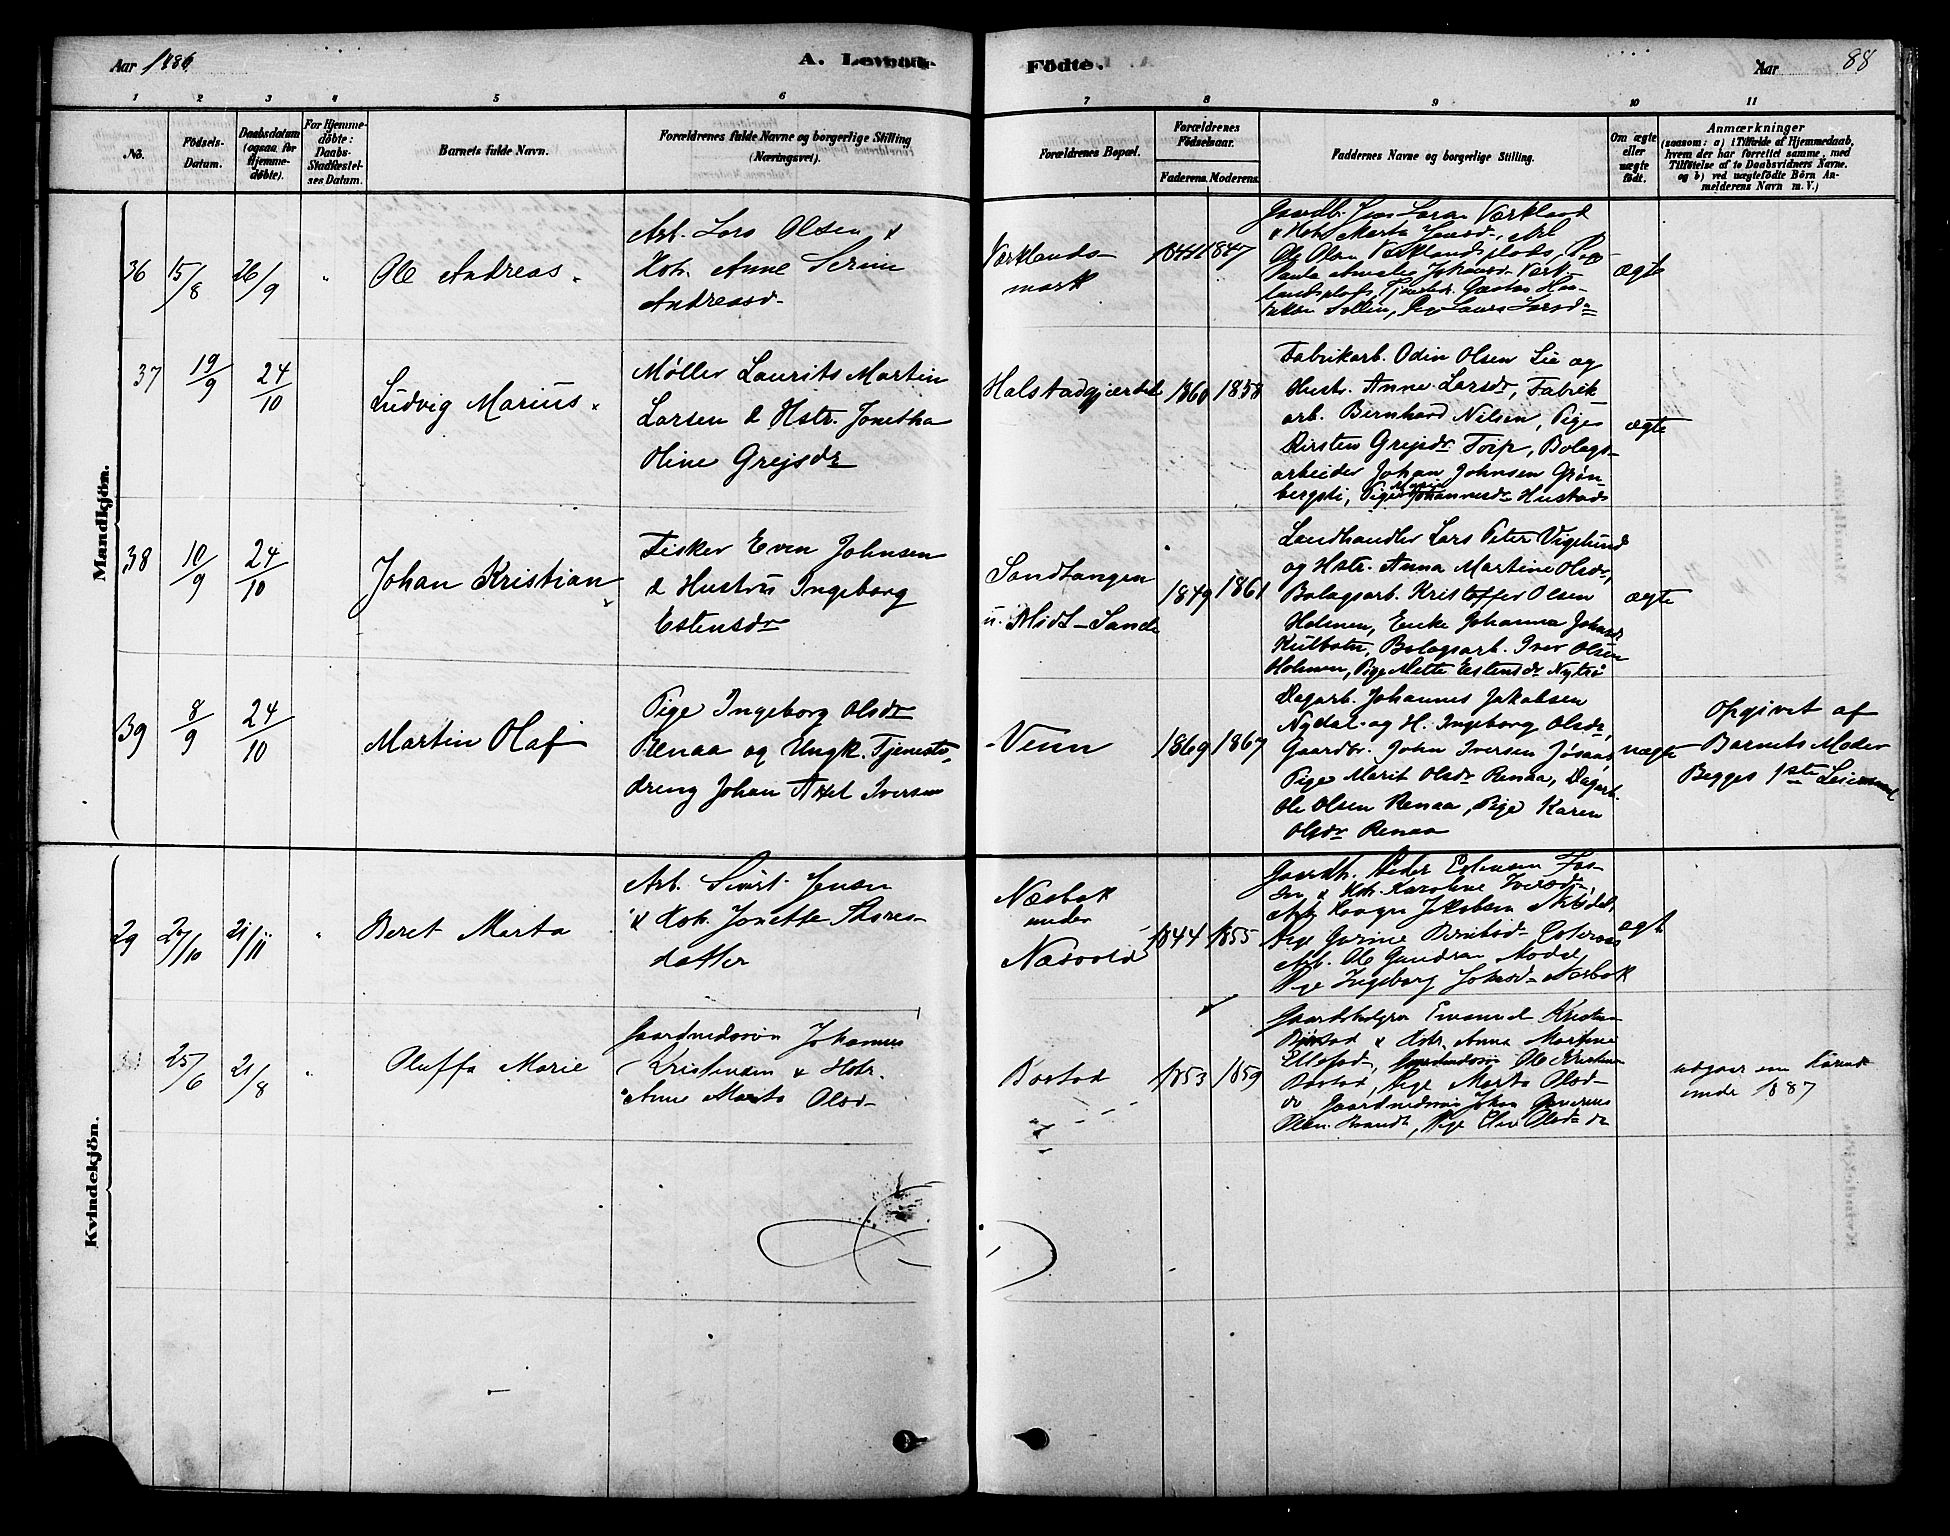 Aar 1886
A. Levende
Födte.
Aar
88
1 2 3 4 5 6 7 8 9 10 11
No.
Födsels-
Datum.
Daabsdatum
(ogsaa for
Hjemme-
döbte).
For Hjemme-
döbte:
Daabs-
Stadfæstel-
ses Datum.
Barnets fulde Navn.
Forældrenes fulde Navne og borgerlige Stilling
(Næringsvei).
Forældrenes Bopæl.
Forældrenes
Födselsaar.
Faderens. Moderens.
Faddernes Navne og borgerlige Stilling.
Om ægte
eller
uægte
födt.
Anmærkninger
(saasom: a) i Tilfælde af Hjemmedaab,
hvem der har forrettet samme, med
Tilföielse af to Daabsvidners Navne.
og b) ved uægtefödte Börn An-
melderens Navn m. V.)
Mandkjön.
36
15/8
26/9
Ole Andreas
Arb. Lars Olsen &
Hstr. Anne Serine
Andreasd.
Værklands-
mark
1847
Gaardb. Jens Larsen Værkland
& Hstr. Marta Jensd., Arb.
Ole Olsen Værklandsplads, Pige
Paula Amalie Johansd. Værk-
landsplads, Tjenestedr. Gustav
Pige Laura Larsd.
ægte
37
19/9
24/10
Ludvig Marius
Møller Laurits Martin
Larsen & Hstr. Jonetha
Oline Grejsdr
Halstadgjerdet
1860
1858
Fabrikarb. Odin Olsen Lie og
Hustr. Anne Larsdr, Fabrik
arb. Bernhard Nilsen, Pige
Kirsten Grejsdr Torp, Bolags-
arbeider Johan Johnsen Grøn-
bergsli, Pige Marie Johannesdr Hustads
ægte
38
10/9
24/10
Johan Kristian
Fisker Even Johnsen
& Hustru Ingeborg
Estensdr
Sandtangen
u. Midt-Sande
1849
1861
Landhandler Lars Peter Vigelund
og Hstr. Anna Martine Olsdr,
Bolagsarb. Kristoffer Olsen
Holmen, Enke Johanna Johnsdr
Bolagsarb. Iver Olsen
Holmen, Pige Mette Estensdr Nytrø
ægte
39
8/9
24/10
Martin Olaf
Pige Ingeborg Olsdr
Renaa og Ungk. Tjeneste-
dreng Johan Axel Iversen
Venn
1869
1867
Dagarb. Johannes Jakobsen
Nydal og H. Ingeborg Olsdr,
Gaardbr. John Iversen Jøsaas,
Pige Marit Olsdr Renaa, Dagarb.
Ole Olsen Renaa, Pige Karen
Olsdr Renaa
uægte
Opgivet af
Barnets Moder
Begges 1ste Leiermaal
Kvindekjön.
29
27/10
21/11
"
Beret Marta
Arb. Sivert Jensen
& Hstr. Jonette Thores-
datter
Næsbak
under
Næsvold
1844
1855
Gaardbr. Peder Estensen
& Hstr. Karoline Iversd.,
Arb. Haagen Jakobsen
Pige
Arb. Ole
Pige Ingeborg Johnsd. Næsbak
ægte
25/6
21/8
"
Oluffa Marie
Gaardmedssøn Johannes
Kristensen & Hstr.
Anne Marta Olsd.
Bostad
1853
1859
Emanuel Kristen
Bostad & Hstr. Anna Martine
Ellefsd., Ole Kristen
Bostad, Pige Marta Olsd.
do Johan
Olsen Brandt, Pige
udgaar
1887